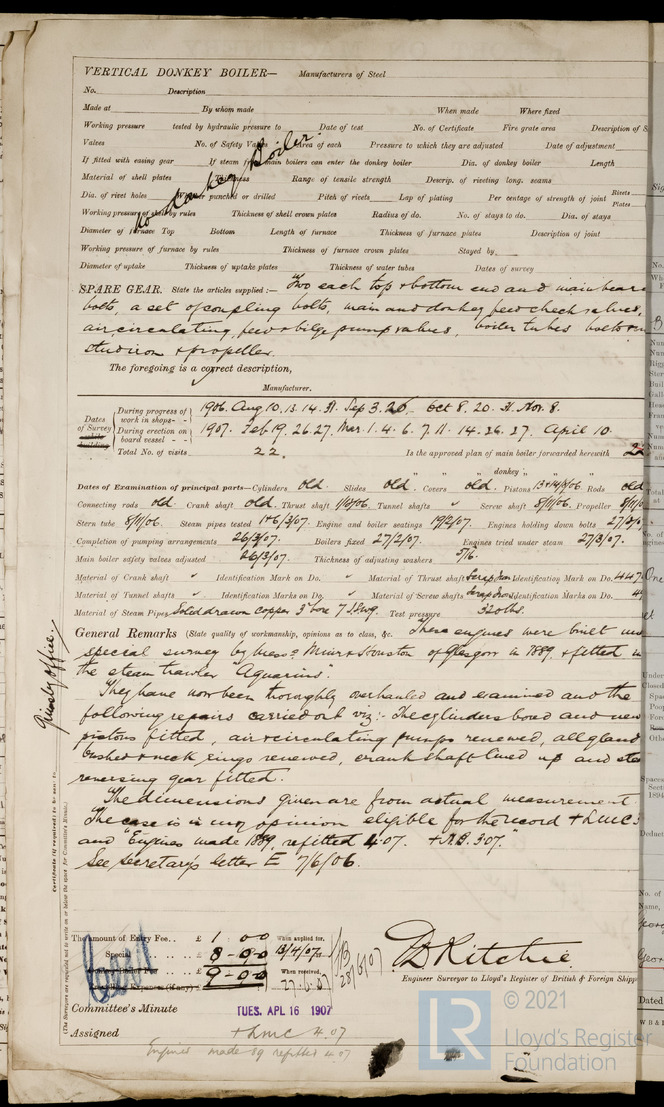 VERTICAL DONKEY BOILER— Manufacturers of Steel
No. Description
Made at By whom made When made Where fixed
Working pressure tested by hydraulic pressure to Date of test No. of Certificate Fire grate area Description of S
Valves No. of Safety Valves Area of each Pressure to which they are adjusted Date of adjustment
If fitted with easing gear If steam from main boilers can enter the donkey boiler Dia. of donkey boiler Length
Material of shell plates Thickness Range of tensile strength Descrip. of riveting long. seams
Dia. of rivet holes Whether punched or drilled Pitch of rivets Lap of plating Per centage of strength of joint Rivets Plates
Working pressure of shell by rules Thickness of shell crown plates Radius of do. No. of stays to do. Dia. of stays
Diameter of furnace Top Bottom Length of furnace Thickness of furnace plates Description of joint
Working pressure of furnace by rules Thickness of furnace crown plates Stayed by
Diameter of uptake Thickness of uptake plates Thickness of water tubes Dates of survey
No Donkey Boiler.
SPARE GEAR. State the articles supplied:— Two each top & bottom end and main bear
bolts, a set of coupling bolts, main and donkey feed check valves,
air circulating, feed & bilge pump valves, boiler tubes bolts
stud iron & propeller.
The foregoing is a correct description,
Manufacturer.
Dates of Survey while building
During progress of work in shops- - 1906. Aug. 10. 13. 14. 31. Sep 3. 26. Oct 8. 20. 31. Nov. 8.
During erection on board vessel - - 1907. Feb 19. 26. 27. Mar. 1. 4. 6. 7. 11. 14. 26. 27. April 10.
Total No. of visits 22. Is the approved plan of main boiler forwarded herewith
" " " donkey " "
Dates of Examination of principal parts—Cylinders old. Slides old. Covers old. Pistons 13+14/8/06. Rods old
Connecting rods old. Crank shaft old. Thrust shaft 1/10/06. Tunnel shafts " Screw shaft 8/11/06. Propeller 8/11/0
Stern tube 8/11/06. Steam pipes tested 1+6/3/07. Engine and boiler seatings 19/2/07. Engines holding down bolts
Completion of pumping arrangements 26/3/07. Boilers fixed 27/2/07. Engines tried under steam 27/3/07.
Main boiler safety valves adjusted 26/3/07. Thickness of adjusting washers 5/16.
Material of Crank shaft " Identification Mark on Do. " Material of Thrust shaft Scrap Iron Identification Mark on Do. 447.
Material of Tunnel shafts " Identification Marks on Do. " Material of Screw shafts Scrap Iron Identification Marks on Do.
Material of Steam Pipes Solid drawn copper 3" bore 7 I.S.W.G. Test pressure 320 lbs.
General Remarks (State quality of workmanship, opinions as to class, &c. These engines were built
special survey by Messrs Muir & Houston of Glasgow in 1889. & fitted in
the steam trawler "Aquarius".
They have now been thoroughly overhauled and examined and the
following repairs carried out viz:- The cylinders bored and new
pistons fitted, air & circulating pumps renewed, all gland
bushed & neck rings renewed, crank shaft lined up and
reversing gear fitted.
The dimensions given are from actual measurement
The case is in my opinion eligible for the record + LMC
and "Engines made 1889, refitted 4.07. + N.B. 3.07."
See Secretary's letter E 7/6/06.
Grimsby Office.
Certificate (if required) to be sent to
(The Surveyors are requested not to write on or below the space for Committee's Minute.)
The amount of Entry Fee .. £ 1 . 0 0 When applied for,
Special .. .. £ 8 - 0 - 0 13/4/07
Donkey Boiler Fee .. £ 9 - 0 - 0 When received,
Travelling Expenses (if any) £
D Ritchie
Engineer Surveyor to Lloyd's Register of British & Foreign Shipp
Committee's Minute TUES. APL 16 1907
Assigned + LMC 4.07
Engines made 89 refitted 4.07
LR
© 2021
Lloyd's Register
Foundation